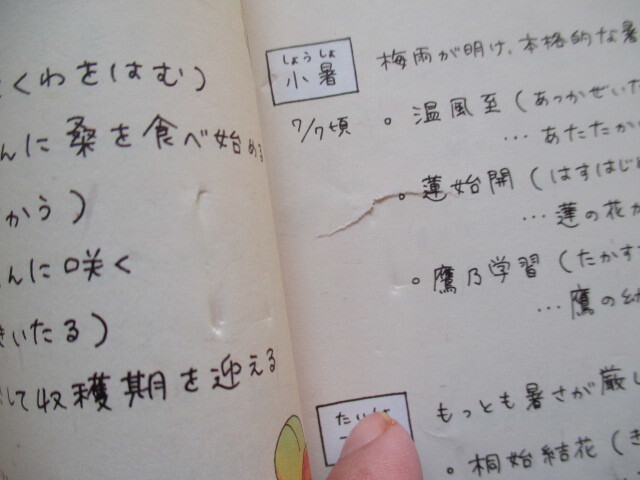 くわをはむ)
んに桑を食べ始める
かう)
んに咲く
きいたる)
して収穫期を迎える
しょうしょ
小暑
7/7頃
梅雨が明け、本格的な暑
。温風至(あつかぜいた
…あたたか
。蓮始開(はすはじめ
…蓮の花か
。鷹乃学習(たかす
…鷹の幼
たいしょ
もっとも暑さが厳し
。桐始結花(き